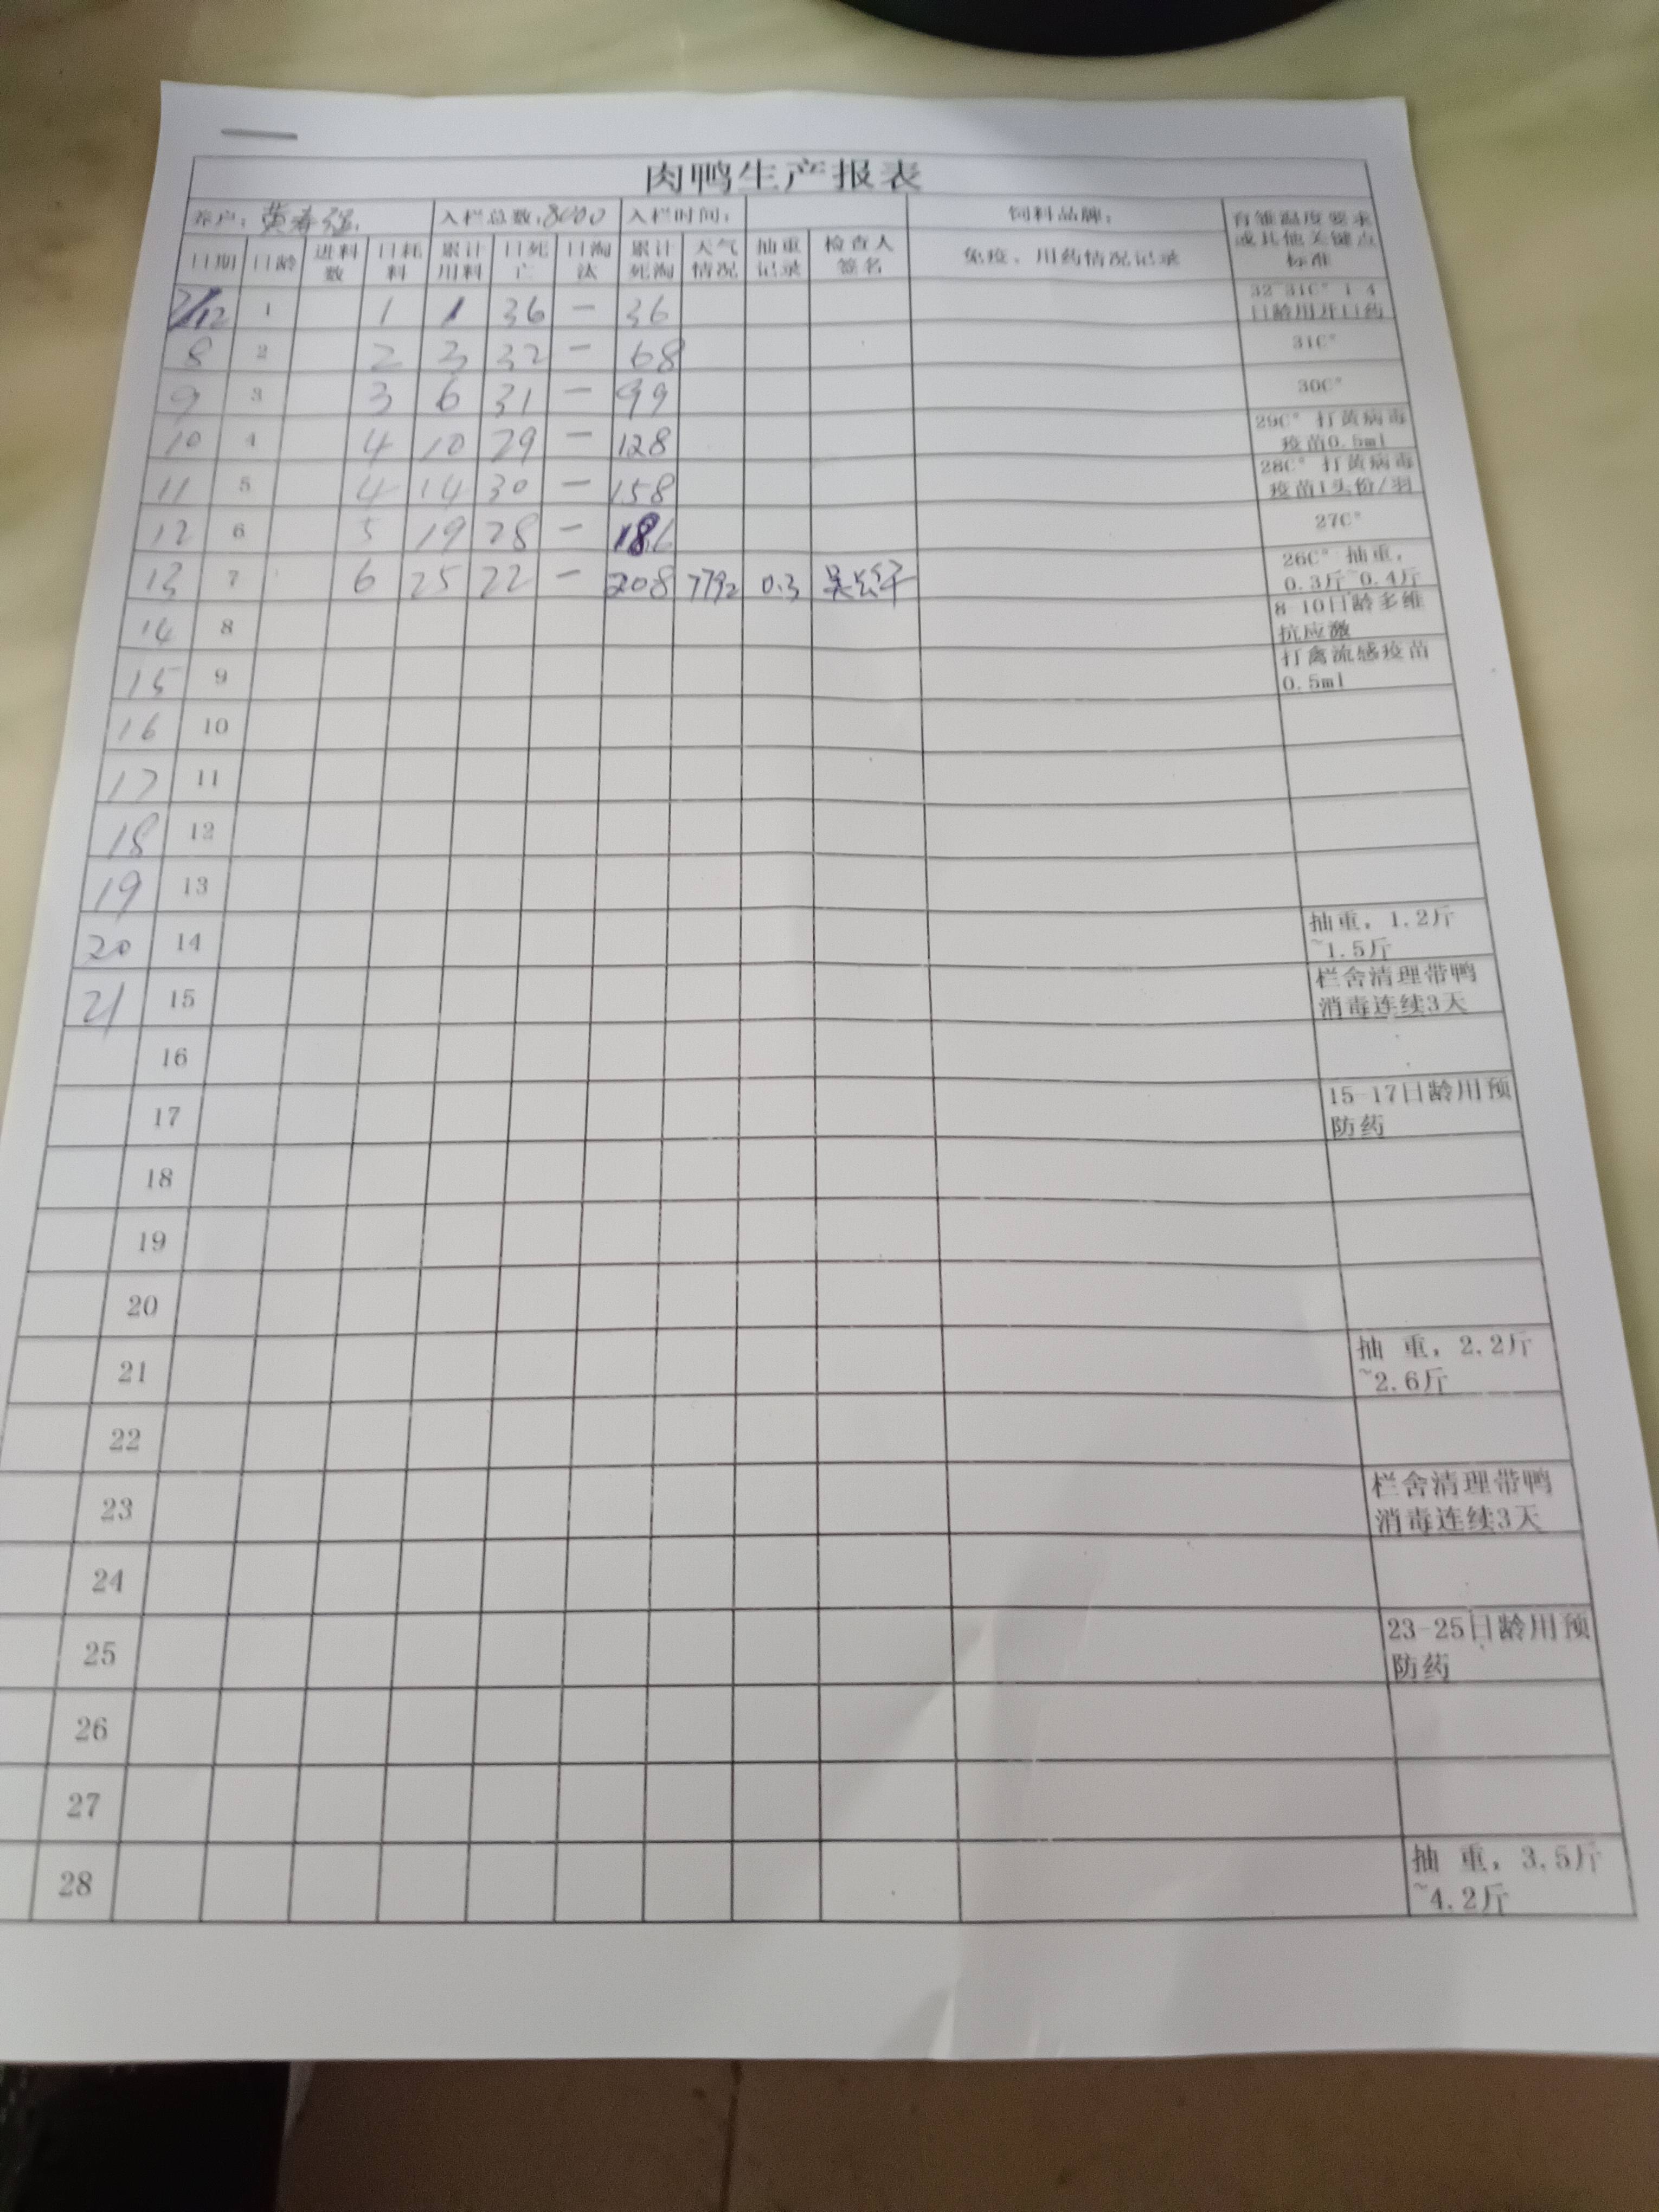 肉鸭生产报表
养户：黄春强 入栏总数：8000 入栏时间： 饲料品牌： 育雏温度要求或其他关键点标准
日期 日龄 进料数 日耗料 累计用料 日死亡 日淘汰 累计死淘 天气情况 抽重记录 检查人签名 免疫、用药情况记录
7/12 1 1 1 36 — 36 32-31C° 1-4日龄用开口药
8 2 2 3 32 — 68 31C°
9 3 3 6 31 — 99 30C°
10 4 4 10 29 — 128 29C° 打黄病毒疫苗0.5ml
11 5 4 14 30 — 158 28C° 打黄病毒疫苗1头份/羽
12 6 5 19 28 — 186 27C°
13 7 6 25 22 — 208 7792 0.3 26C° 抽重，0.3斤~0.4斤
14 8 8-10日龄多维抗应激
15 9 打禽流感疫苗0.5ml
16 10
17 11
18 12
19 13
20 14 抽重，1.2斤~1.5斤
21 15 栏舍清理带鸭消毒连续3天
16
17 15-17日龄用预防药
18
19
20
21 抽 重，2.2斤~2.6斤
22
23 栏舍清理带鸭消毒连续3天
24
25 23-25日龄用预防药
26
27
28 抽 重，3.5斤~4.2斤